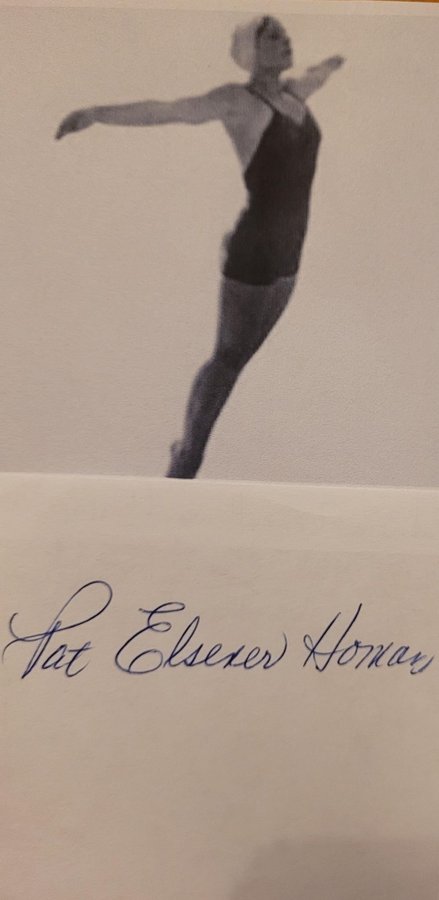 Pat Elsener Homan